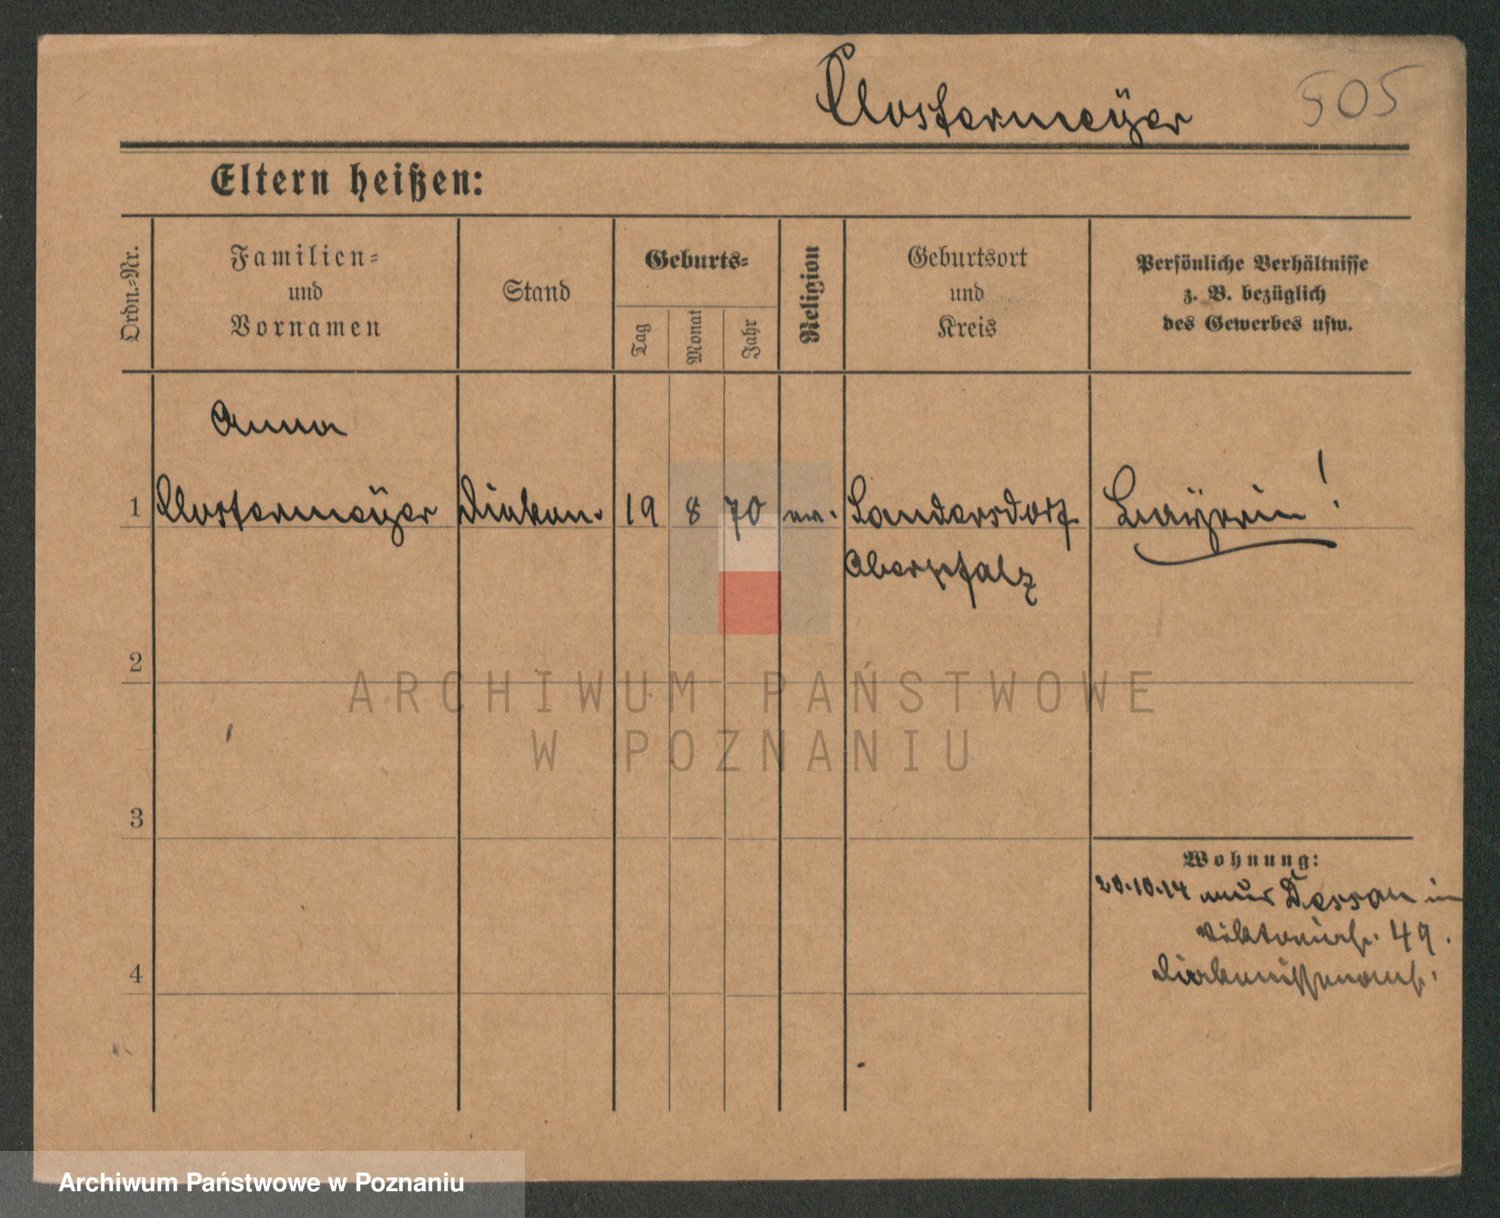 Clostermeÿer 505
Eltern heißen:
Ordn.-Nr.
Familien-
und
Vornamen
Stand
Geburts-
Tag
Monat
Jahr
Religion
Geburtsort
und
Kreis
Persönliche Verhältnisse
z. B. bezüglich
des Gewerbes usw.
Anna
1 Clostermeÿer Diakon. 19 8 70 ev. Sandersdorf Baÿerin!
Oberpfalz
2
ARCHIWUM PAŃSTWOWE
W POZNANIU
3
Wohnung:
20.10.14 Dessau in
Viktoriastr. 49.
Diakonissenanst.
4
Archiwum Państwowe w Poznaniu